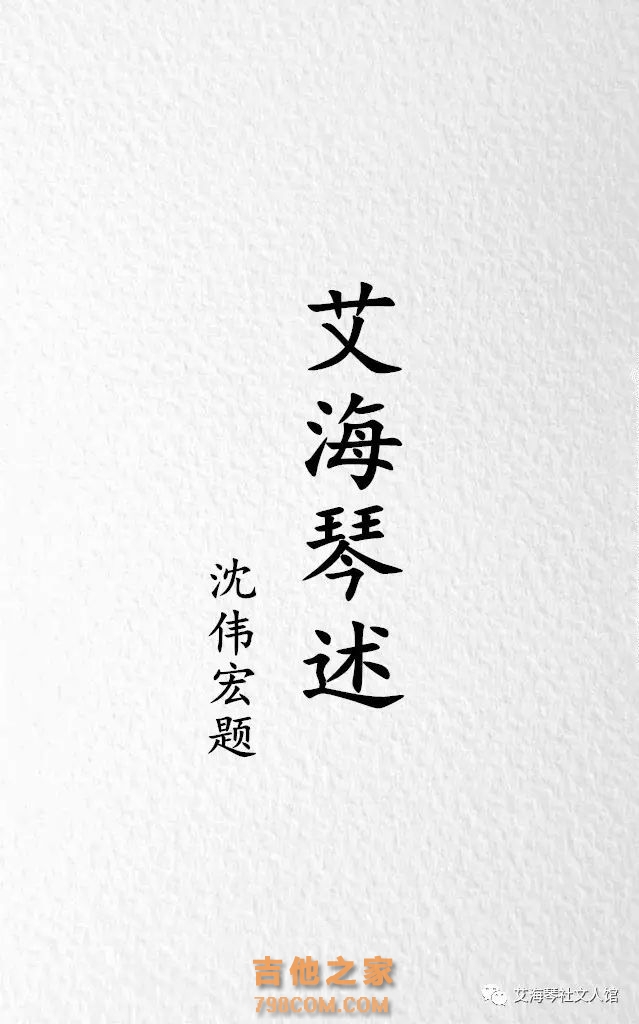 艾海琴述
沈伟宏题
吉他之家
798COM.COM
艾海琴社文人馆